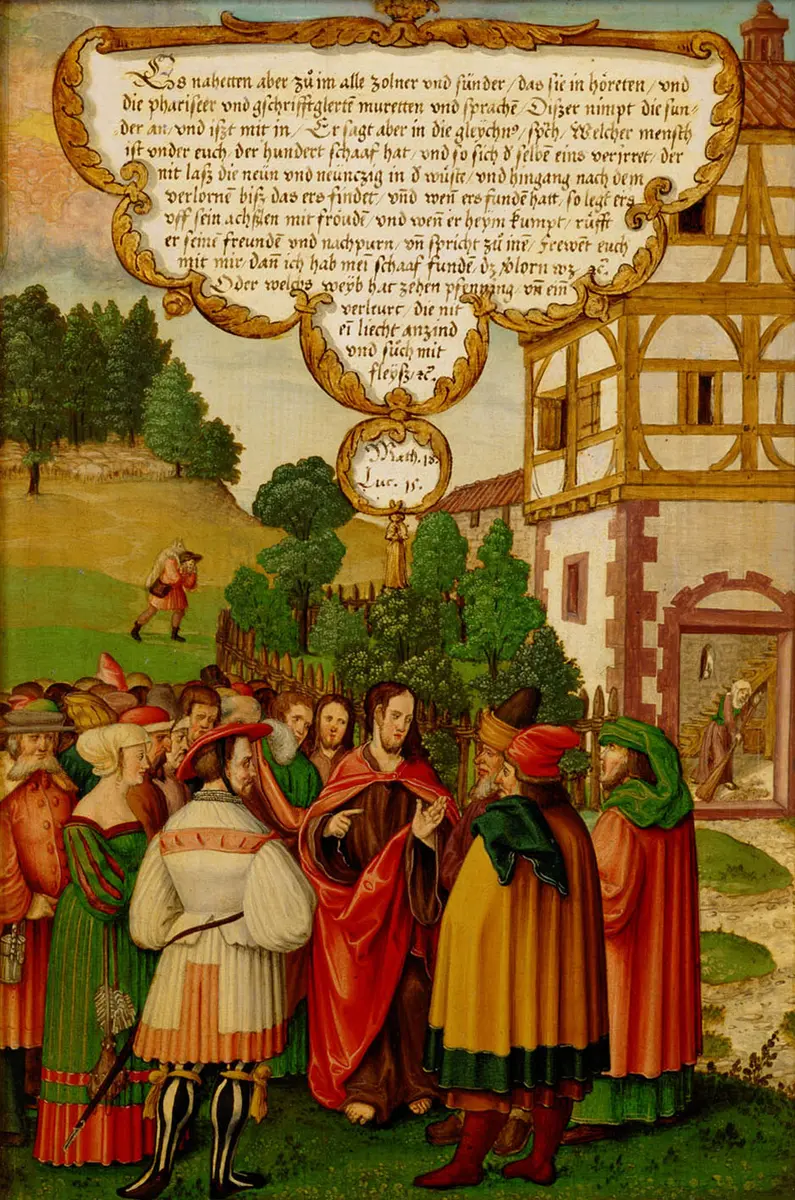 Es nahetten aber zů im alle zolner vnd sünder / das sie in höreten / vnd
die phariseer vnd gschrifftglertẽ muretten vnd sprachẽ / Diszer nimpt die sun-
der an / vnd iszt mit in / Er sagt aber in die gleychnꝰ / spch / Welcher mensch
ist vnder euch / der hundert schaaf hat / vnd so sich d' selbẽ eins verjrret / der
nit lasz die neün vnd neünczig in d' wüste / vnd hingang nach dem
verlornen bisz das ers findet / vñd weñ ers fundẽ hatt / so legt ers
vff sein achszlen mit fröuden / vnd weñ er heym kumpt / rüfft
er seinẽ freunden vnd nachpurn / vñ spricht zů inẽ / frewent euch
mit mir / dañ ich hab mei schaaf fundẽ / dz vlorn wz ꝛc̃.
Oder welchs weyb hat zehen pfenning / vñ ein
verleurt / die nit
ei liecht anzind
vnd sůch mit
fleysz / ꝛc̃.
Math. 18.
Luc. 15.